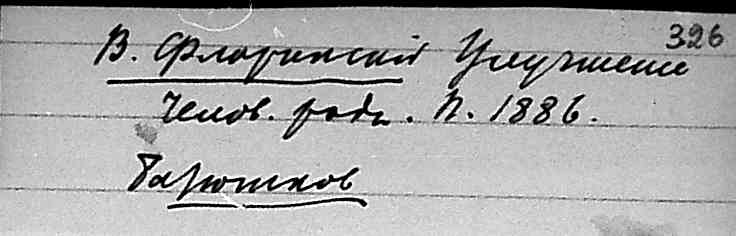 326
В. Флоринский Улучшение
Челов. рода. П. 1886.
Батюшков